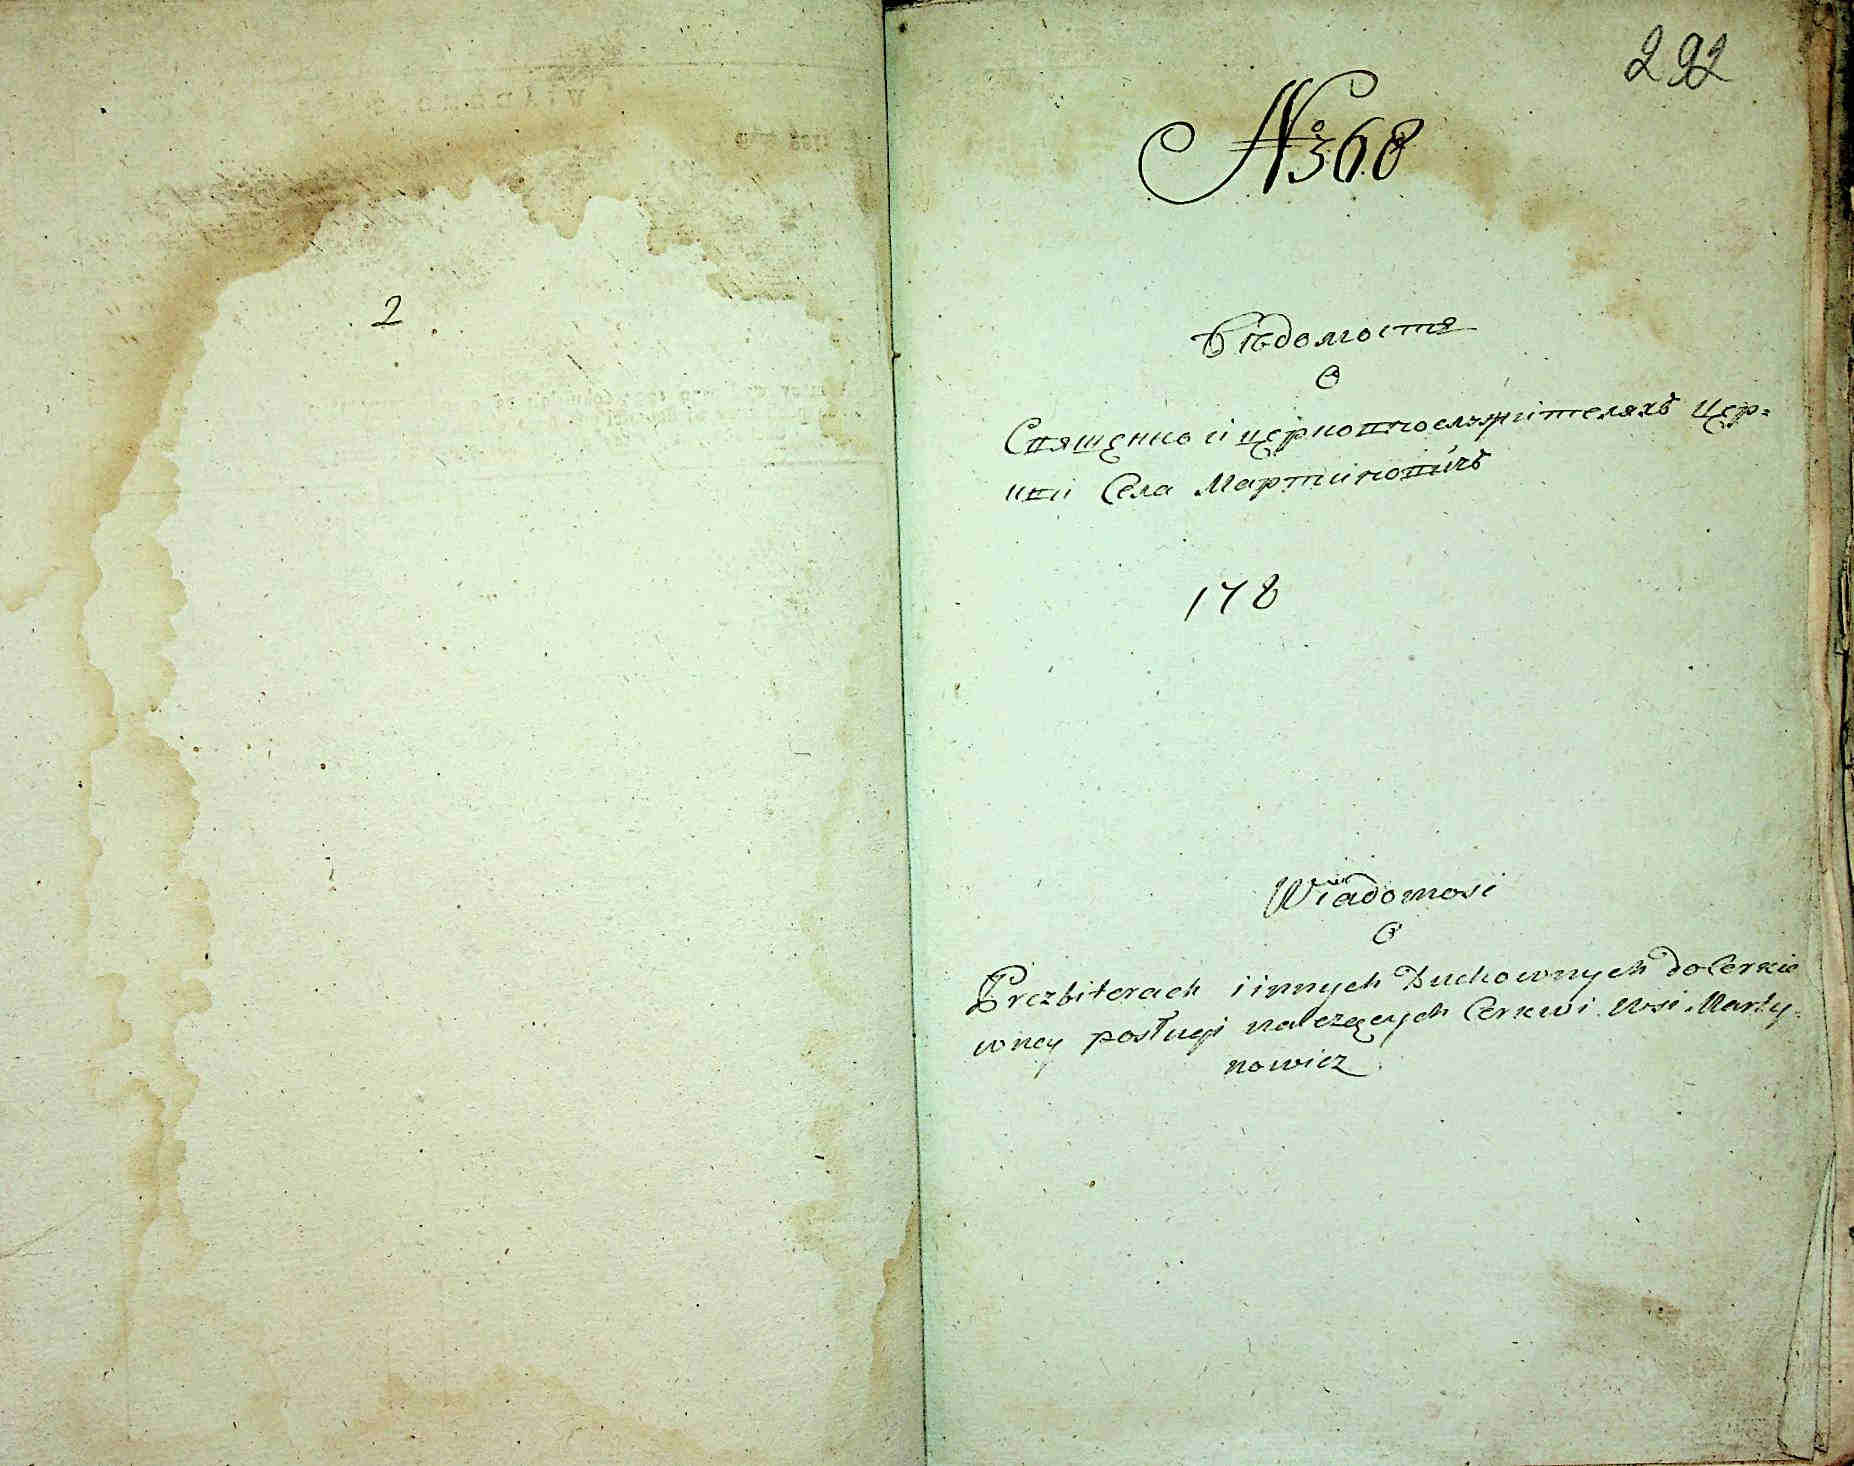 2
292
№ 368
Вѣдомостя
О
Священно и церковнослужителяхъ цер=
кви Села Мартиновичъ
178
Wiadomosi
O
Prezbiterach i innych Duchownych do Cerkie
wney posługi nalezących Cerkwi Wsi Marty=
nowicz